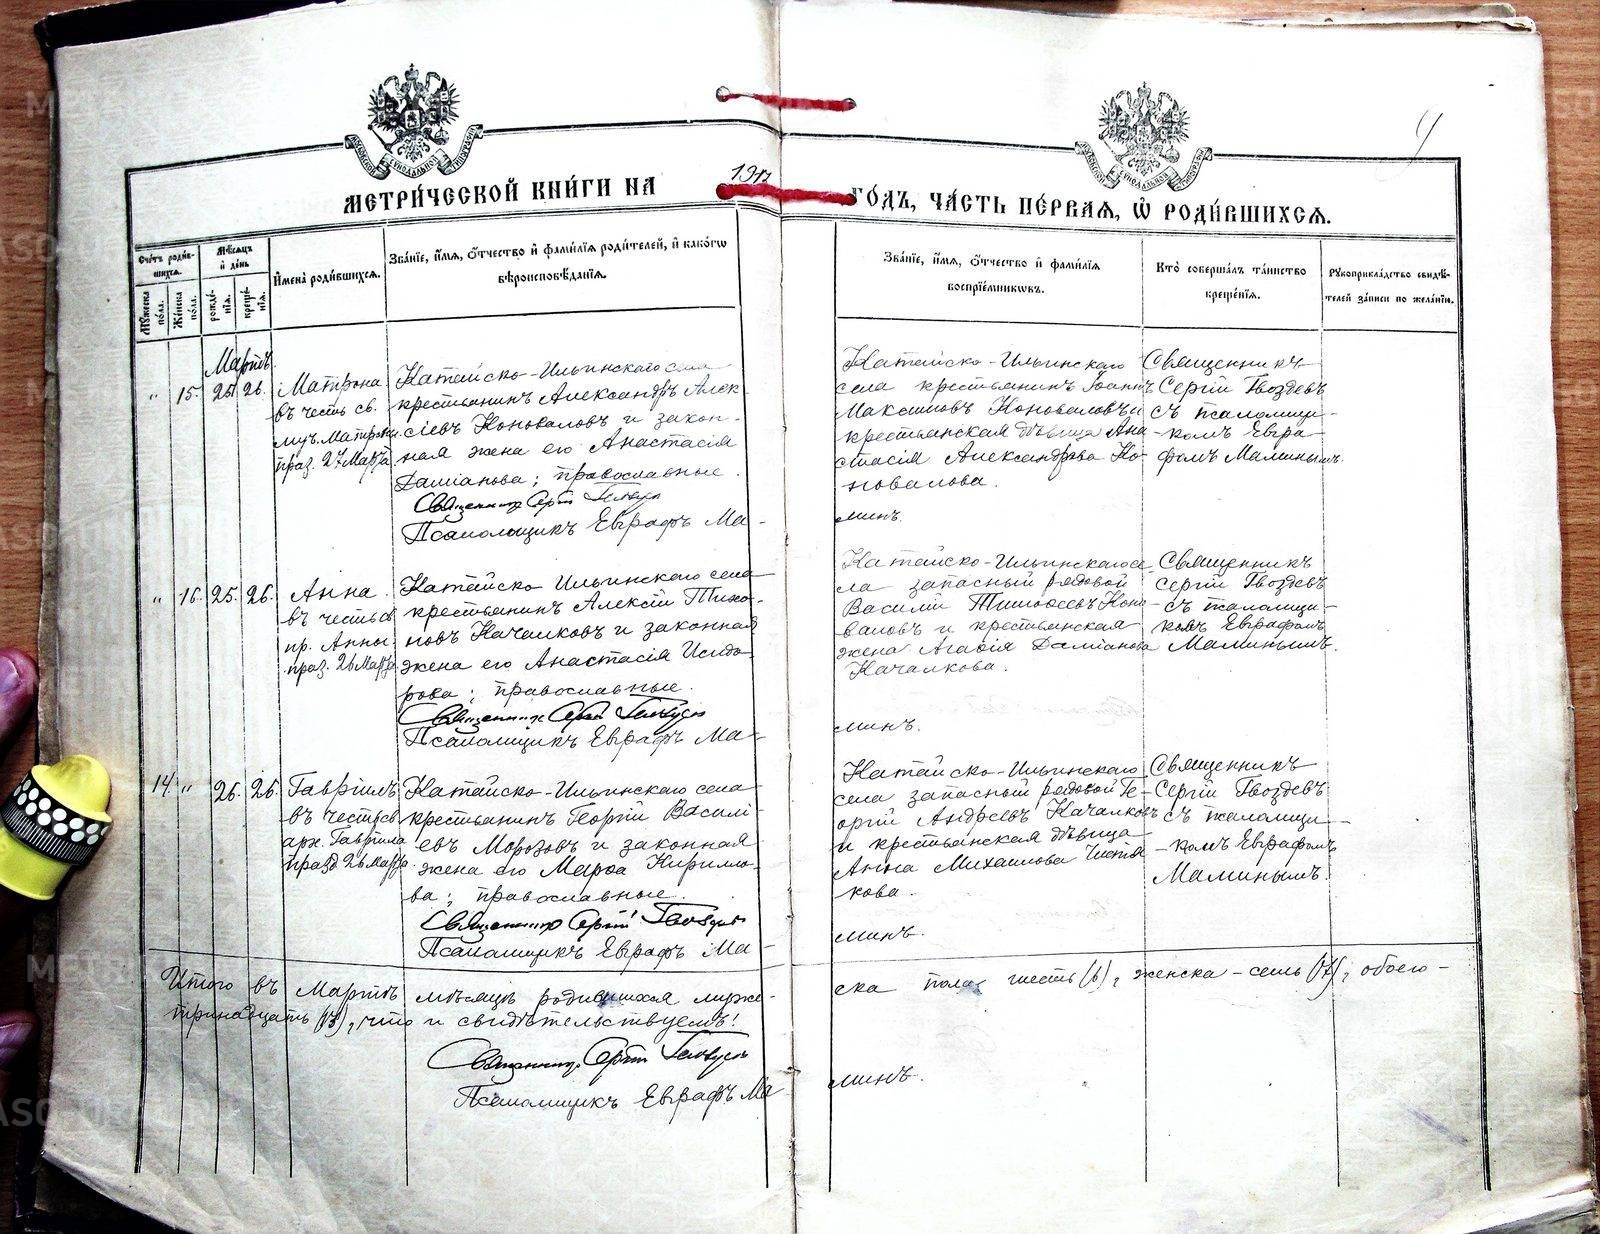 МЕТРИ́ЧЕСКОЙ КНИ́ГИ НА 1917 ГО́ДЪ, ЧА́СТЬ ПЕ́РВАЯ, Ѽ РОДИ́ВШИХСЯ.
9
Сче́тъ роди́вшихся.
Мѣ́сяцъ и де́нь
Мꙋ́жеска по́ла.
Же́нска по́ла.
рожде́нїя.
креще́нїя.
И҆мена̀ роди́вшихся.
Зва́нїе, и҆́мя, ѻ҆́тчество и҆ фами́лїя роди́телей, и҆ како́гѡ вѣроисповѣ́данїя.
Зва́нїе, и҆́мя, ѻ҆́тчество и҆ фами́лїя воспрїе́мникѡвъ.
Кто̀ соверша́лъ та́инство креще́нїя.
Рꙋкоприкла́дство свидѣ́телей за́писи по жела́нїю.
Мартъ
„ 15. 25. 26.
Матрона
въ честь св.
муч. Матроны
праз. 27 Марта
Катайско-Ильинскаго села
крестьянинъ Александръ Алек-
сіевъ Коноваловъ и закон-
ная жена его Анастасія
Даміанова; православные.
Священникъ Сергій Гвоздевъ
Псаломщикъ Евграфъ Ма-
Катайско-Ильинскаго
села крестьянинъ Іоаннъ
Максимовъ Коноваловъ и
крестьянская дѣвица Ана-
стасія Александрова Ко-
новалова.
минъ.
Священникъ
Сергій Гвоздевъ
съ псаломщи-
комъ Евгра-
фомъ Маминымъ.
„ 16. 25. 26.
Анна
въ честь св
пр. Анны
праз. 26 Марта
Катайско Ильинскаго села
крестьянинъ Алексій Тихо-
новъ Качалковъ и законная
жена его Анастасія Исидо-
рова; православные.
Священникъ Сергій Гвоздевъ
Псаломщикъ Евграфъ Ма-
Катайско-Ильинскаго се
ла запасный рядовой
Василій Тимоѳеевъ Коно-
валовъ и крестьянская
жена Агафія Даміанова
Качалкова.
минъ.
Священникъ
Сергій Гвоздевъ
съ псаломщи-
комъ Евграфомъ
Маминымъ.
14. „ 26. 26.
Гавріилъ
въ честь св
арх. Гавріила
празд. 26 Марта
Катайско-Ильинскаго села
крестьянинъ Георгій Василі-
евъ Морозовъ и законная
жена его Марѳа Кирилло-
ва; православные.
Священникъ Сергій Гвоздевъ
Псаломщикъ Евграфъ Ма-
Катайско-Ильинскаго
села запасный рядовой Ге-
оргій Андреевъ Качалковъ
и крестьянская дѣвица
Анна Михаилова Чистя-
кова.
минъ.
Священникъ
Сергій Гвоздевъ
съ псаломщи-
комъ Евграфомъ
Маминымъ.
Итого въ Мартѣ мѣсяцѣ родившихся муже-ска пола шесть (6), женска-семь (7), обоего-
тринадцать (13), что и свидѣтельствуемъ!
Священникъ Сергій Гвоздевъ
Псаломщикъ Евграфъ Ма-
минъ.